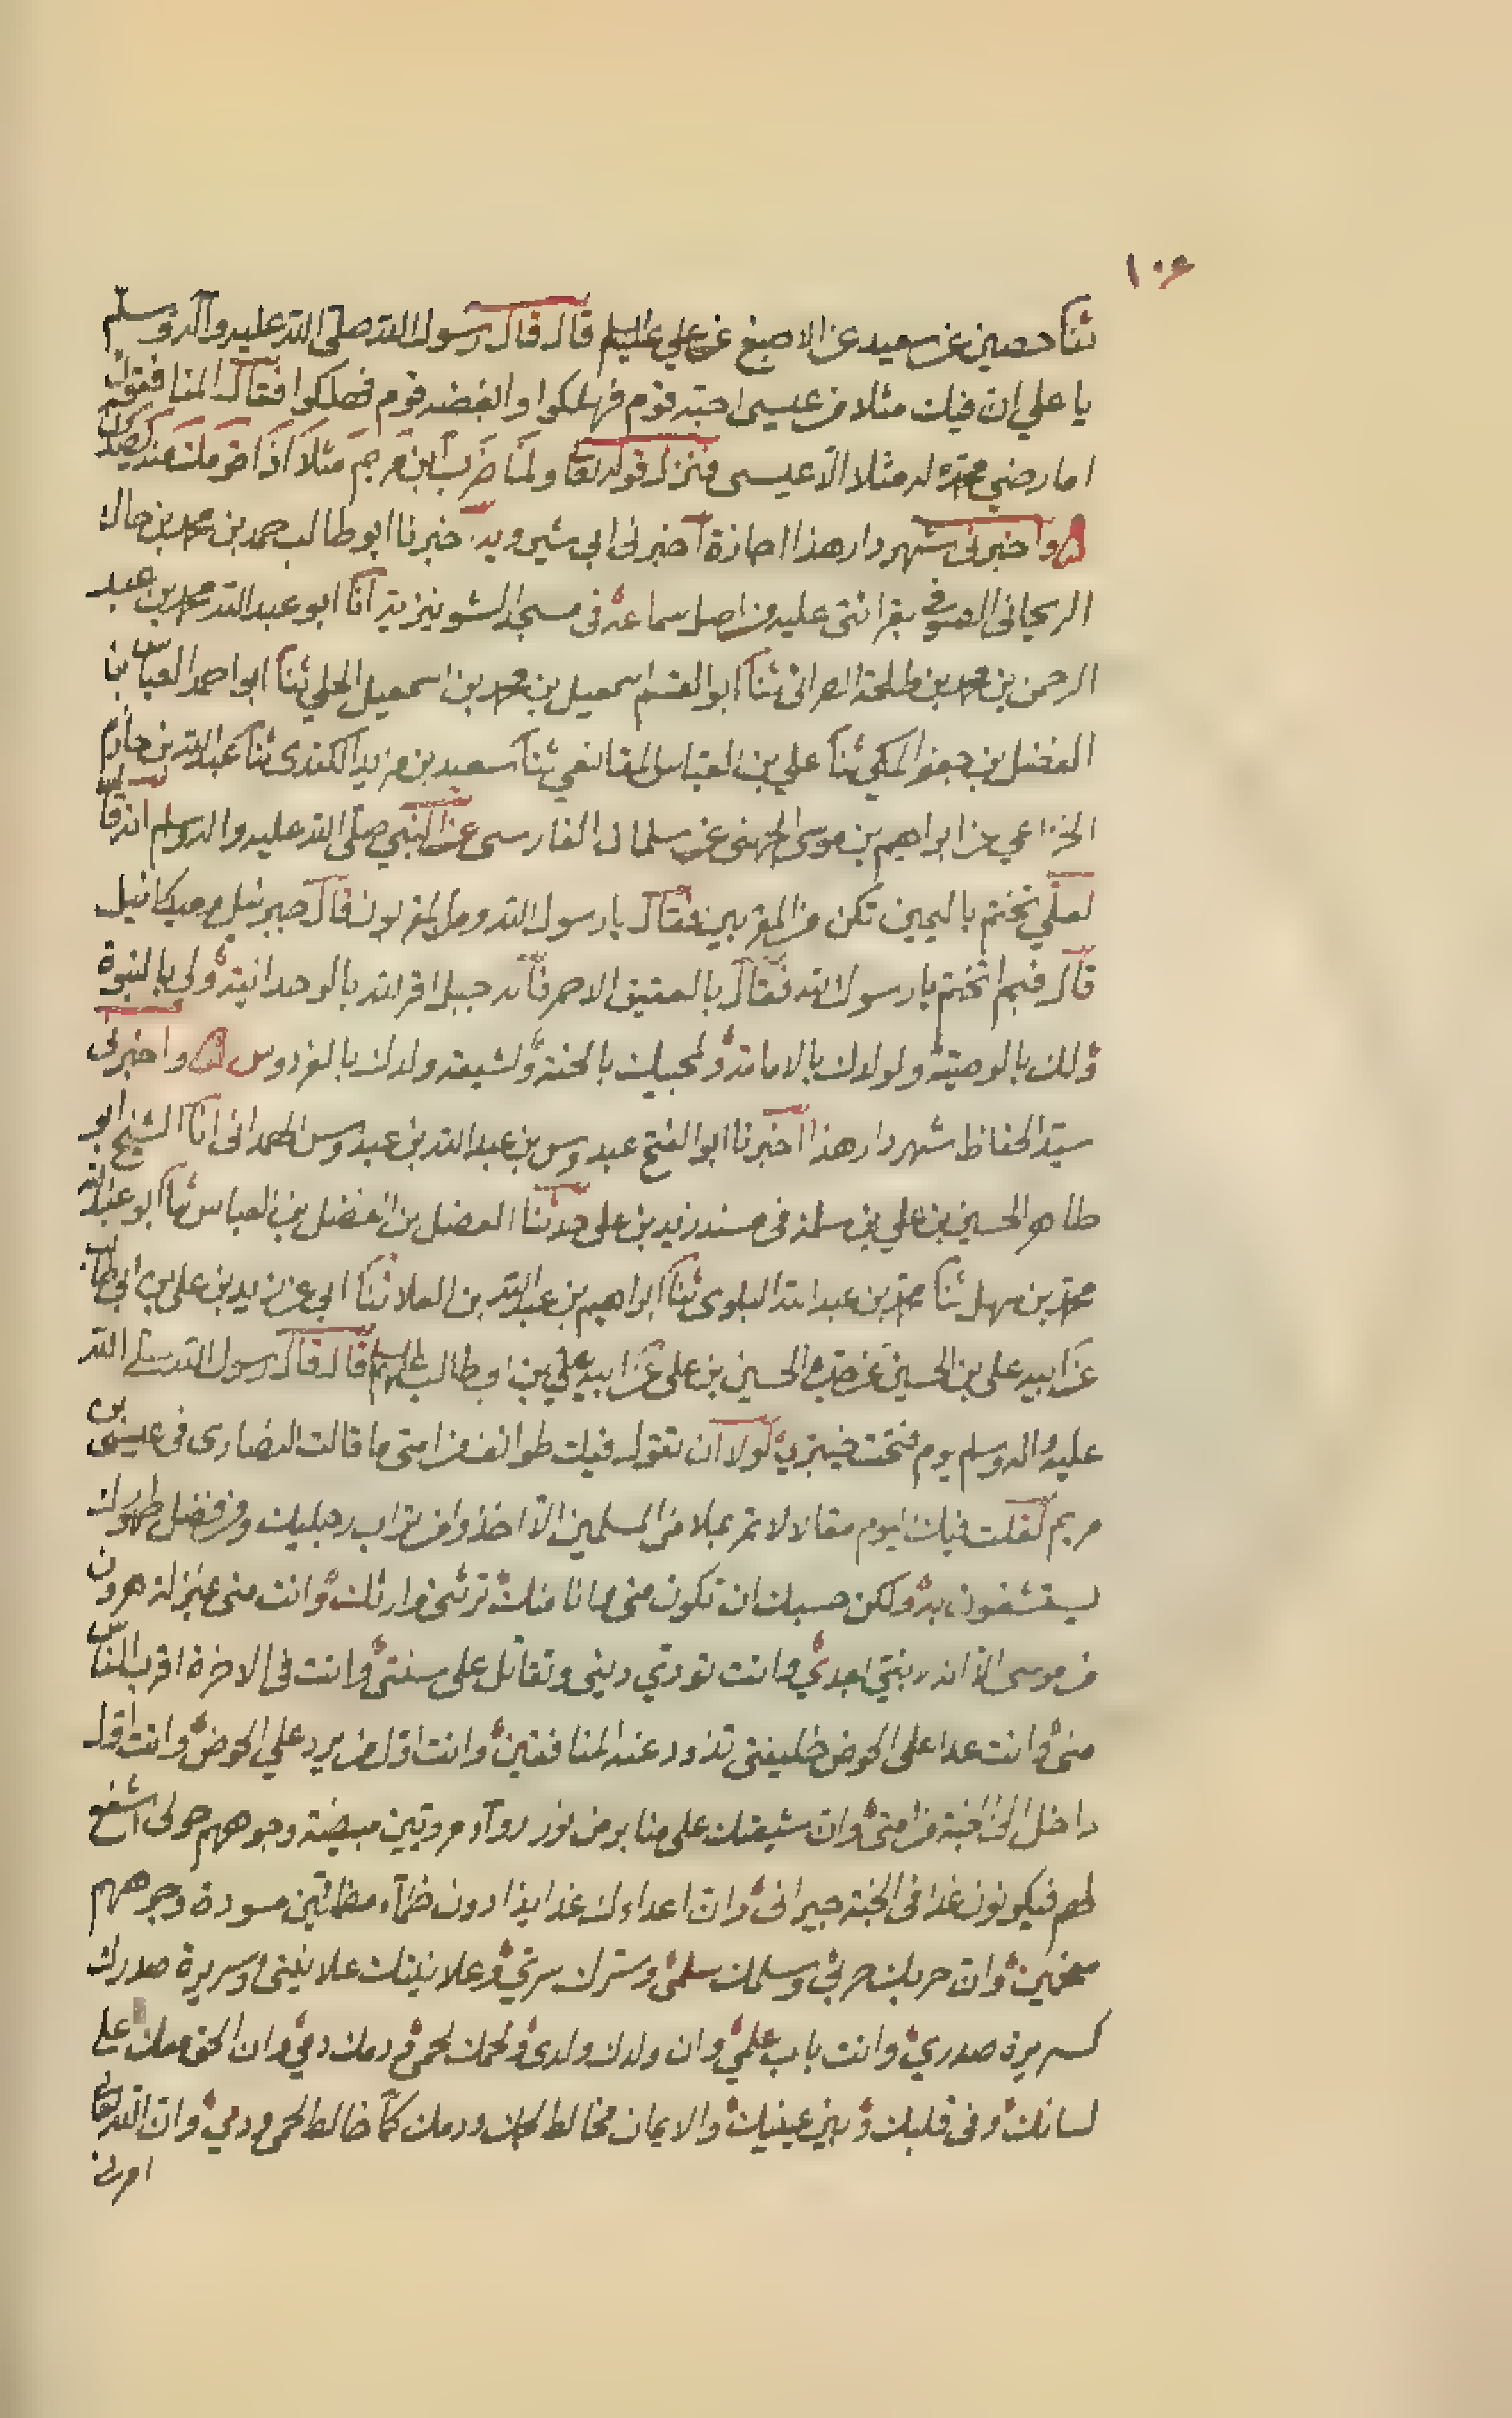 ١٠٦
ثنا حصين عن سعيد عن الاصبغ عن علي عليه السلم قال قال رسول الله صلى الله عليه وآله وسلم
يا علي ان فيك مثلا من عيسى احبه قوم فهلكوا وابغضه قوم فهلكوا فقال المنافقون
اما رضي محمد له مثلا الا عيسى فنزل قوله تعا ولما ضرب ابن مريم مثلا اذا قومك منه يصدون
واخبرني شهردار هذا اجازة اخبرني ابي شيرويه اخبرنا ابو طالب حمد بن محمد بن خالد
الريحاني الصوفي بقرائتي عليه من اصل سماعه في مسجد الشونيزية انا ابو عبد الله محمد بن عبد
الرحمن بن محمد بن طلحة الصرانى ثنا ابو القسم اسمعيل بن محمد بن اسمعيل الحلي ثنا ابو احمد العباس بن
الفضل بن جعفر المكي ثنا علي بن العباس المقانعي ثنا سعيد بن مزيد الكندى ثنا عبد الله بن حازم
الخزاعي عن ابراهيم بن موسى الجهنى عن سلمان الفارسى عن النبي صلى الله عليه واله وسلم انه قال
لعلي تختم باليمين تكن من المقربين فقال يا رسول الله وما المقربون قال جبرئيل وميكائيل
قال فبم اتختم يا رسول الله فقال بالعقيق الاحمر فانه جبل اقر لله بالوحدانية ولي بالنبوة
ولك بالوصية ولولدك بالامامة ولمحبيك بالجنة ولشيعة ولدك بالفردوس واخبرني
سيد الحفاظ شهردار هذا اخبرنا ابو الفتح عبدوس بن عبد الله بن عبدوس الهمدانى انا الشيخ ابو
طاهر الحسين بن علي بن سلمة في مسند زيد بن على حدثنا الفضل بن الفضل بن العباس ثنا ابو عبد الله
محمد بن سهل ثنا محمد بن عبد الله البلوى ثنا ابراهيم بن عبد الله بن العلا ثنا ابي عن زيد بن على بن ابي طالب
عن ابيه على بن الحسين عن جده الحسين بن على عن ابيه علي بن ابي طالب عليهم السلم قال قال رسول الله صلى الله
عليه واله وسلم يوم فتحت خيبر لولا ان تقول فيك طوائف من امتى ما قالت النصارى في عيسى بن
مريم لقلت فيك اليوم مقالا لا تمر بملا من المسلمين الا اخذوا من تراب رجليك ومن فضل طهورك
يستشفون به ولكن حسبك ان تكون منى وانا منك ترثنى وارثك وانت منى بمنزلة هرون
من موسى الا انه لا نبي بعدي وانت تؤدي دينى وتقاتل على سنتى وانت في الاخرة اقرب الناس
منى وانت غدا على الحوض خليفتى تذود عنه المنافقين وانت اول من يرد علي الحوض وانت اول
داخل الى الجنة من امتى وان شيعتك على منابر من نور رواء مرويين مبيضة وجوههم حولى اشفع
لهم فيكونون غدا في الجنة جيرانى وان اعداءك غدا ظماء مظمائين مسودة وجوههم
مقمحين وان حربك حربى وسلمك سلمى وسرك سري وعلانيتك علانيتى وسريرة صدرك
كسريرة صدري وانت باب علمى وان ولدك ولدى ولحمك لحمى ودمك دمي وان الحق معك على
لسانك وفى قلبك وبين عينيك والايمان مخالط لحمك ودمك كما خالط لحمى ودمي وان الله تعالى
امرنى